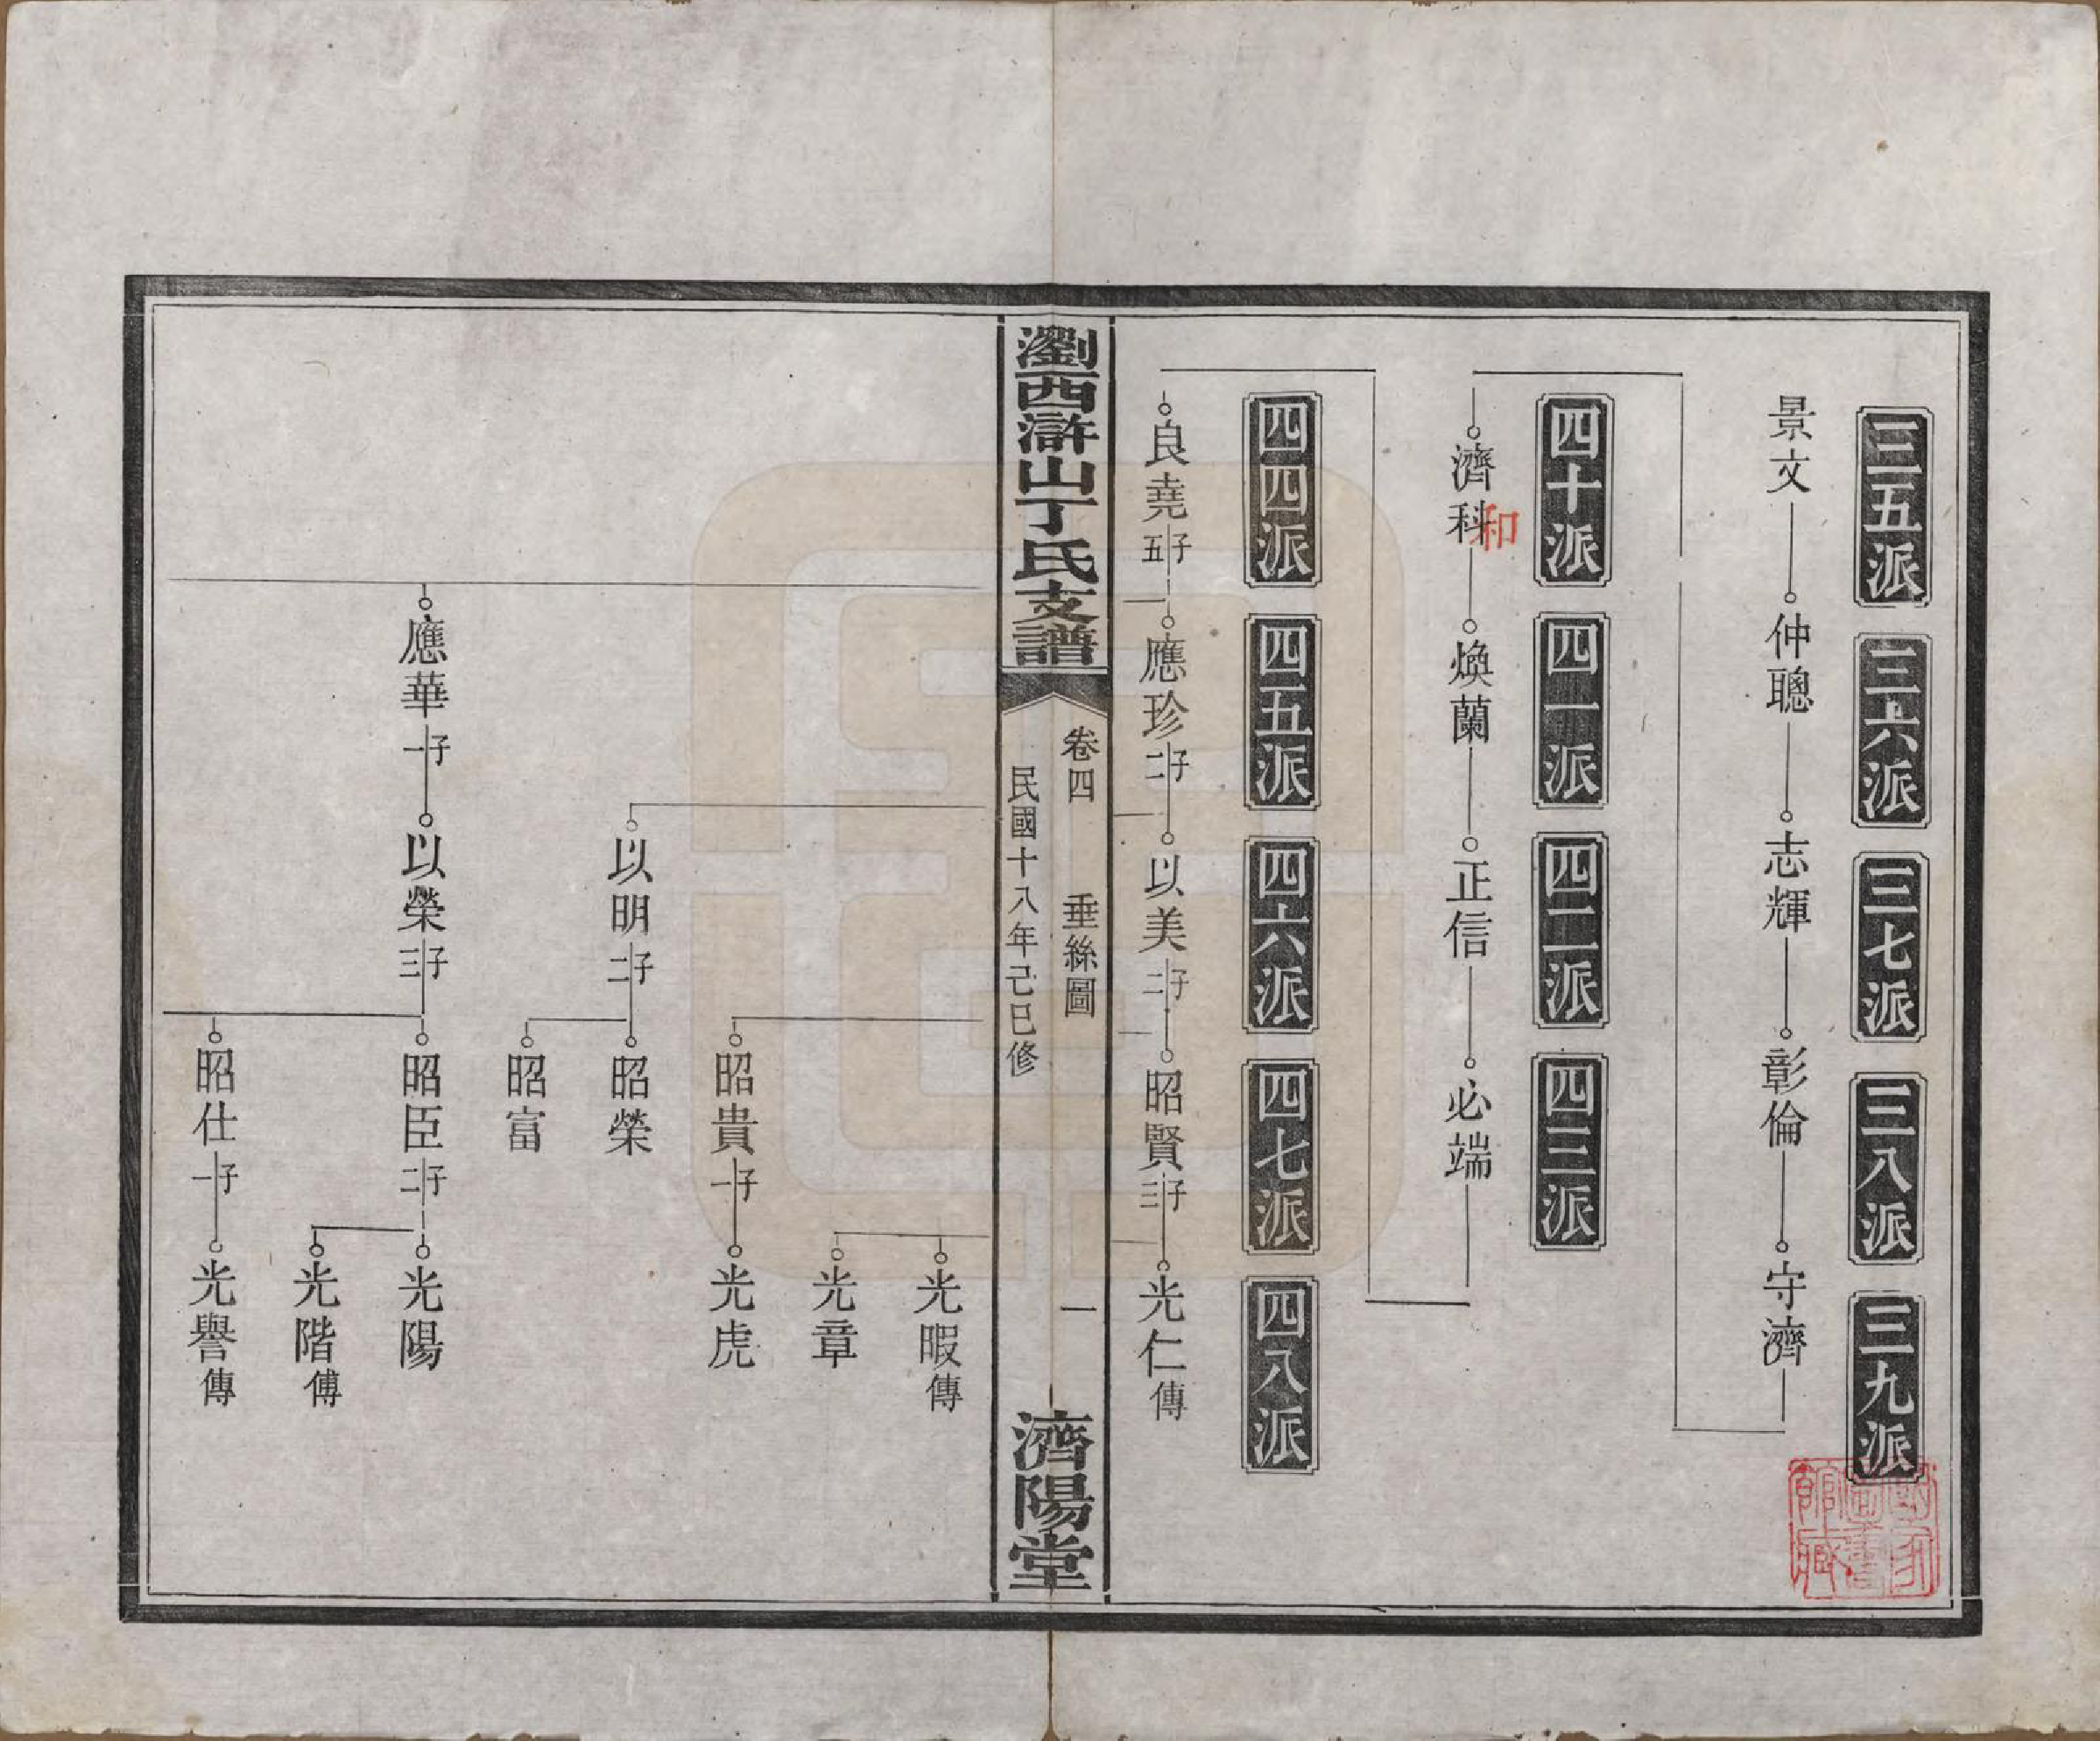 三五派
三六派
三七派
三八派
三九派
景文
仲聰
志輝
彰倫
守濟
四十派
四一派
四二派
四三派
濟科
和
煥蘭
正信
必端
四四派
四五派
四六派
四七派
四八派
良堯 五子
應珍 二子
以美 二子
昭賢 三子
光仁傳
瀏西滸山丁氏支譜
卷四
垂絲圖
一
民國十八年己巳修
濟陽堂
光暇傳
光章
昭貴 一子
光虎
以明 二子
昭榮
昭富
應華 一子
以榮 三子
昭臣 二子
光陽
光階傳
昭仕 一子
光譽傳
國家
圖書
館藏